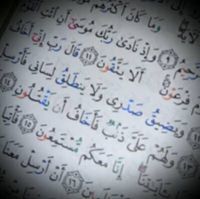 وَمَا كَانَ أَكْثَرُهُم
وَإِذْ نَادَىٰ رَبُّكَ مُوسَىٰ أَنِ ٱئْتِ
فِرْعَوْنَ أَلَا يَتَّقُونَ ١١ قَالَ رَبِّ إِنِّىٓ
وَيَضِيقُ صَدْرِى وَلَا يَنطَلِقُ لِسَانِى فَأَرْسِلْ
وَلَهُمْ عَلَىَّ ذَنۢبٌ فَأَخَافُ أَن يَقْتُلُونِ
إِنَّا مَعَكُم مُّسْتَمِعُونَ ١٥ فَأْتِيَا
١٦ أَنْ أَرْسِلْ مَعَنَا